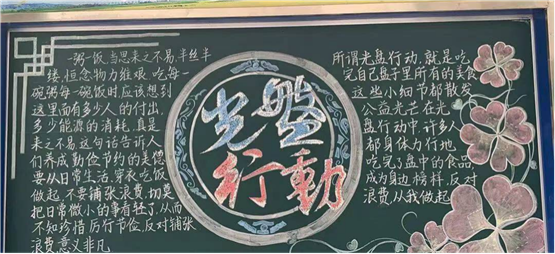 一粥一饭,当思来之不易,半丝半
缕,恒念物力维艰。吃每一
碗粥每一碗饭时,应该想到
这里面有多少人的付出,
多少能源的消耗,真是
来之不易这句话告诉人
们养成勤俭节约的美德
要从日常生活,穿衣吃饭
做起,不要铺张浪费,切莫
把日常微小的事看轻了,从而
不知珍惜厉行节俭,反对铺张
浪费意义非凡
光盤
行動
所谓光盘行动,就是吃
完自己盘子里所有的美食
这些小细节都散发
公益光芒在光
盘行动中,许多人
都身体力行地
吃完了盘中的食品
成为身边榜样,反对
浪费从我做起